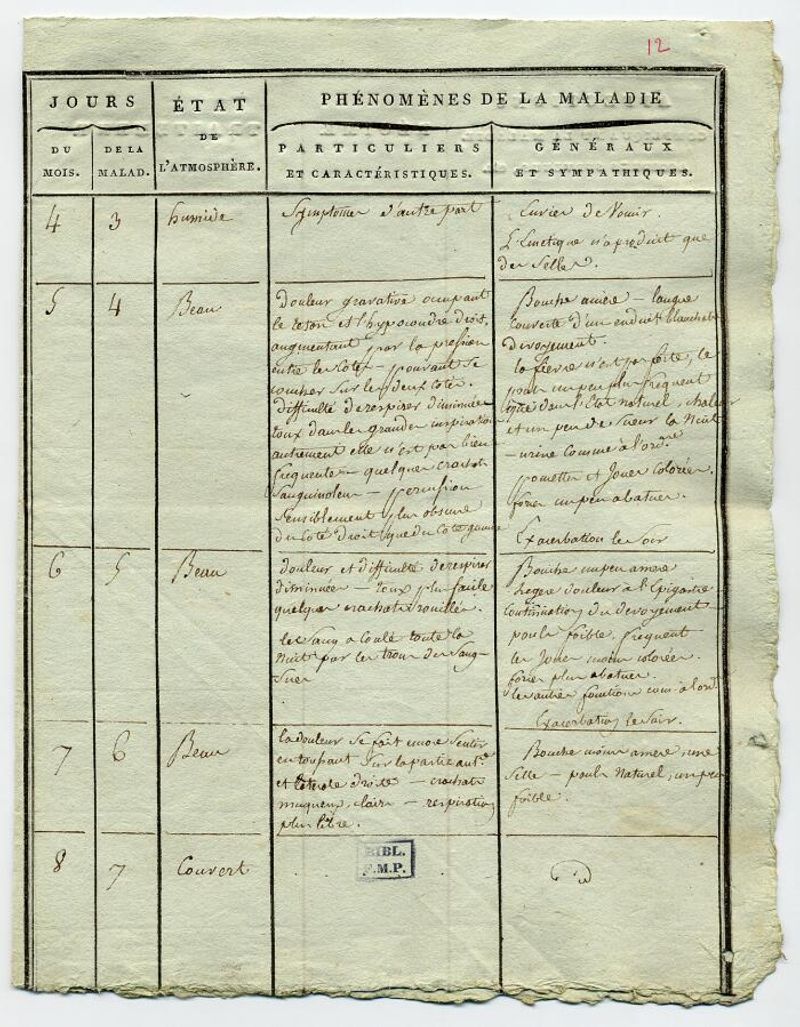 12
JOURS
ÉTAT
DE
L'ATMOSPHÈRE.
PHÉNOMÈNES DE LA MALADIE
DU
MOIS.
DE LA
MALAD.
PARTICULIERS
ET CARACTÉRISTIQUES.
GÉNÉRAUX
ET SYMPATHIQUES.
4
3
humide
Symptomes d'autre part
Envies de Vomir.
L'Emetique n'a produit que
des Selles.
5
4
Beau
douleur gravative occupant
le teton et l'hypocondre droit,
augmentant par la pression
entre les Cotes - pouvant se
coucher sur les deux Cotés.
difficulté de respirer diminuée
toux dans les grandes inspirations
autrement elle n'est pas bien
frequente - quelques crachats
Sanguinolens - percussion
Sensiblement plus obscure
du Coté droit que du Coté gauche
Bouche amère - langue
couverte d'un enduit blanchatre
Devoyement.
la fievre n'est pas forte, le
pouls un peu plus frequent
que dans l'Etat naturel, chaleur
et un peu de Sueur la Nuit
- urine comme à l'ord.re
pomettes et Joues colorées.
forces un peu abatues.
Exacerbation le Soir
6
5
Beau
douleur et difficulté de respirer
diminuée - toux plus facile
quelques crachats rouillés.
le Sang a Coulé toute la
Nuit par les trous des Sang-
Sues
Bouche un peu amere
legere douleur à l'Epigastre
Continuation du devoyement -
pouls foible, frequent
les Joues moins colorées.
forces plus abatues.
les autres fonctions com. à l'ord.
Exacerbation le Soir.
7
6
Beau
la douleur se fait encore Sentir
en toussant Sur la partie ant.e
et laterale droite - crachats
muqueux, clairs - respiration
plus libre.
Bouche moins amere, une
Selle - pouls Naturel, un peu
foible.
8
7
Couvert
BIBL.
F.M.P.